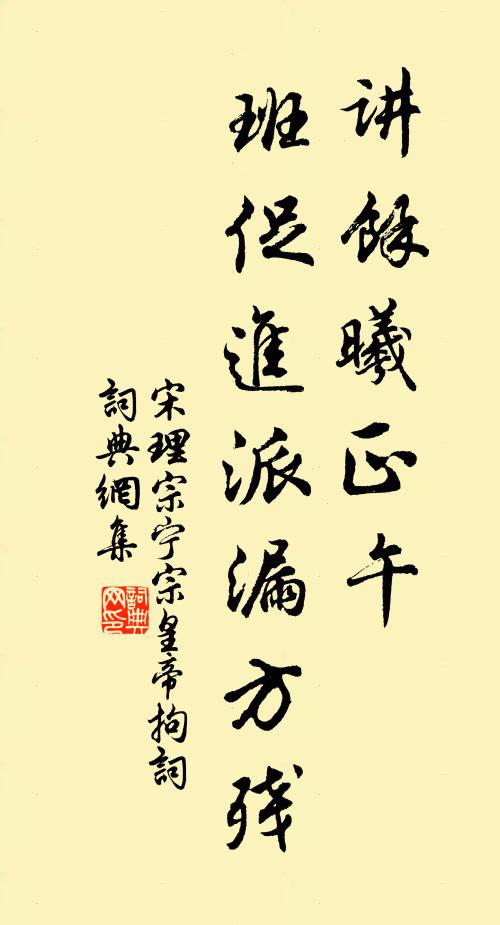 讲馀曦正午
班促進派漏方残
宋理宗宁宗皇帝拘詞
詞典網集
詞典网印